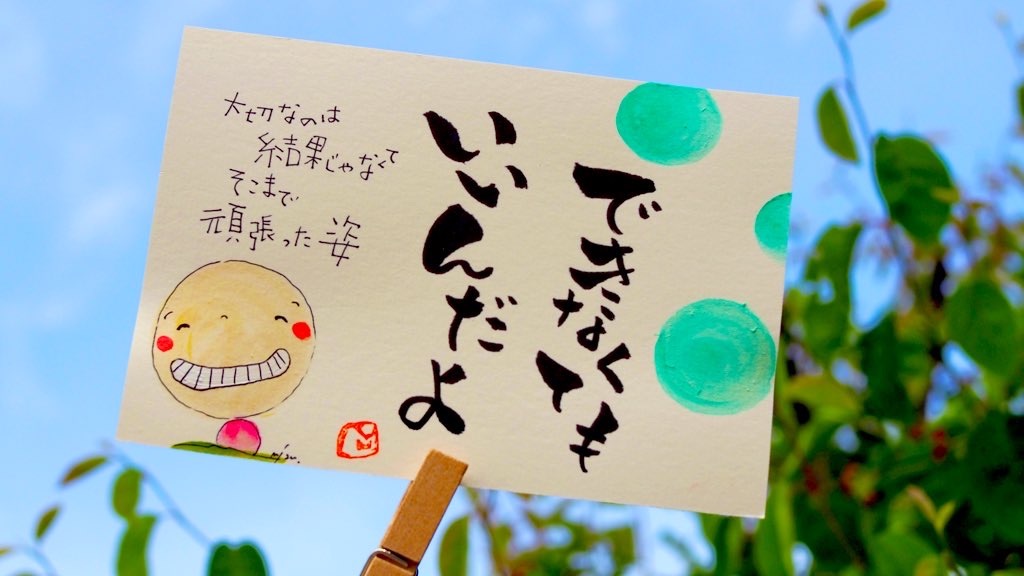 できなくても
いいんだよ
大切なのは
結果じゃなくて
そこまで
頑張った姿